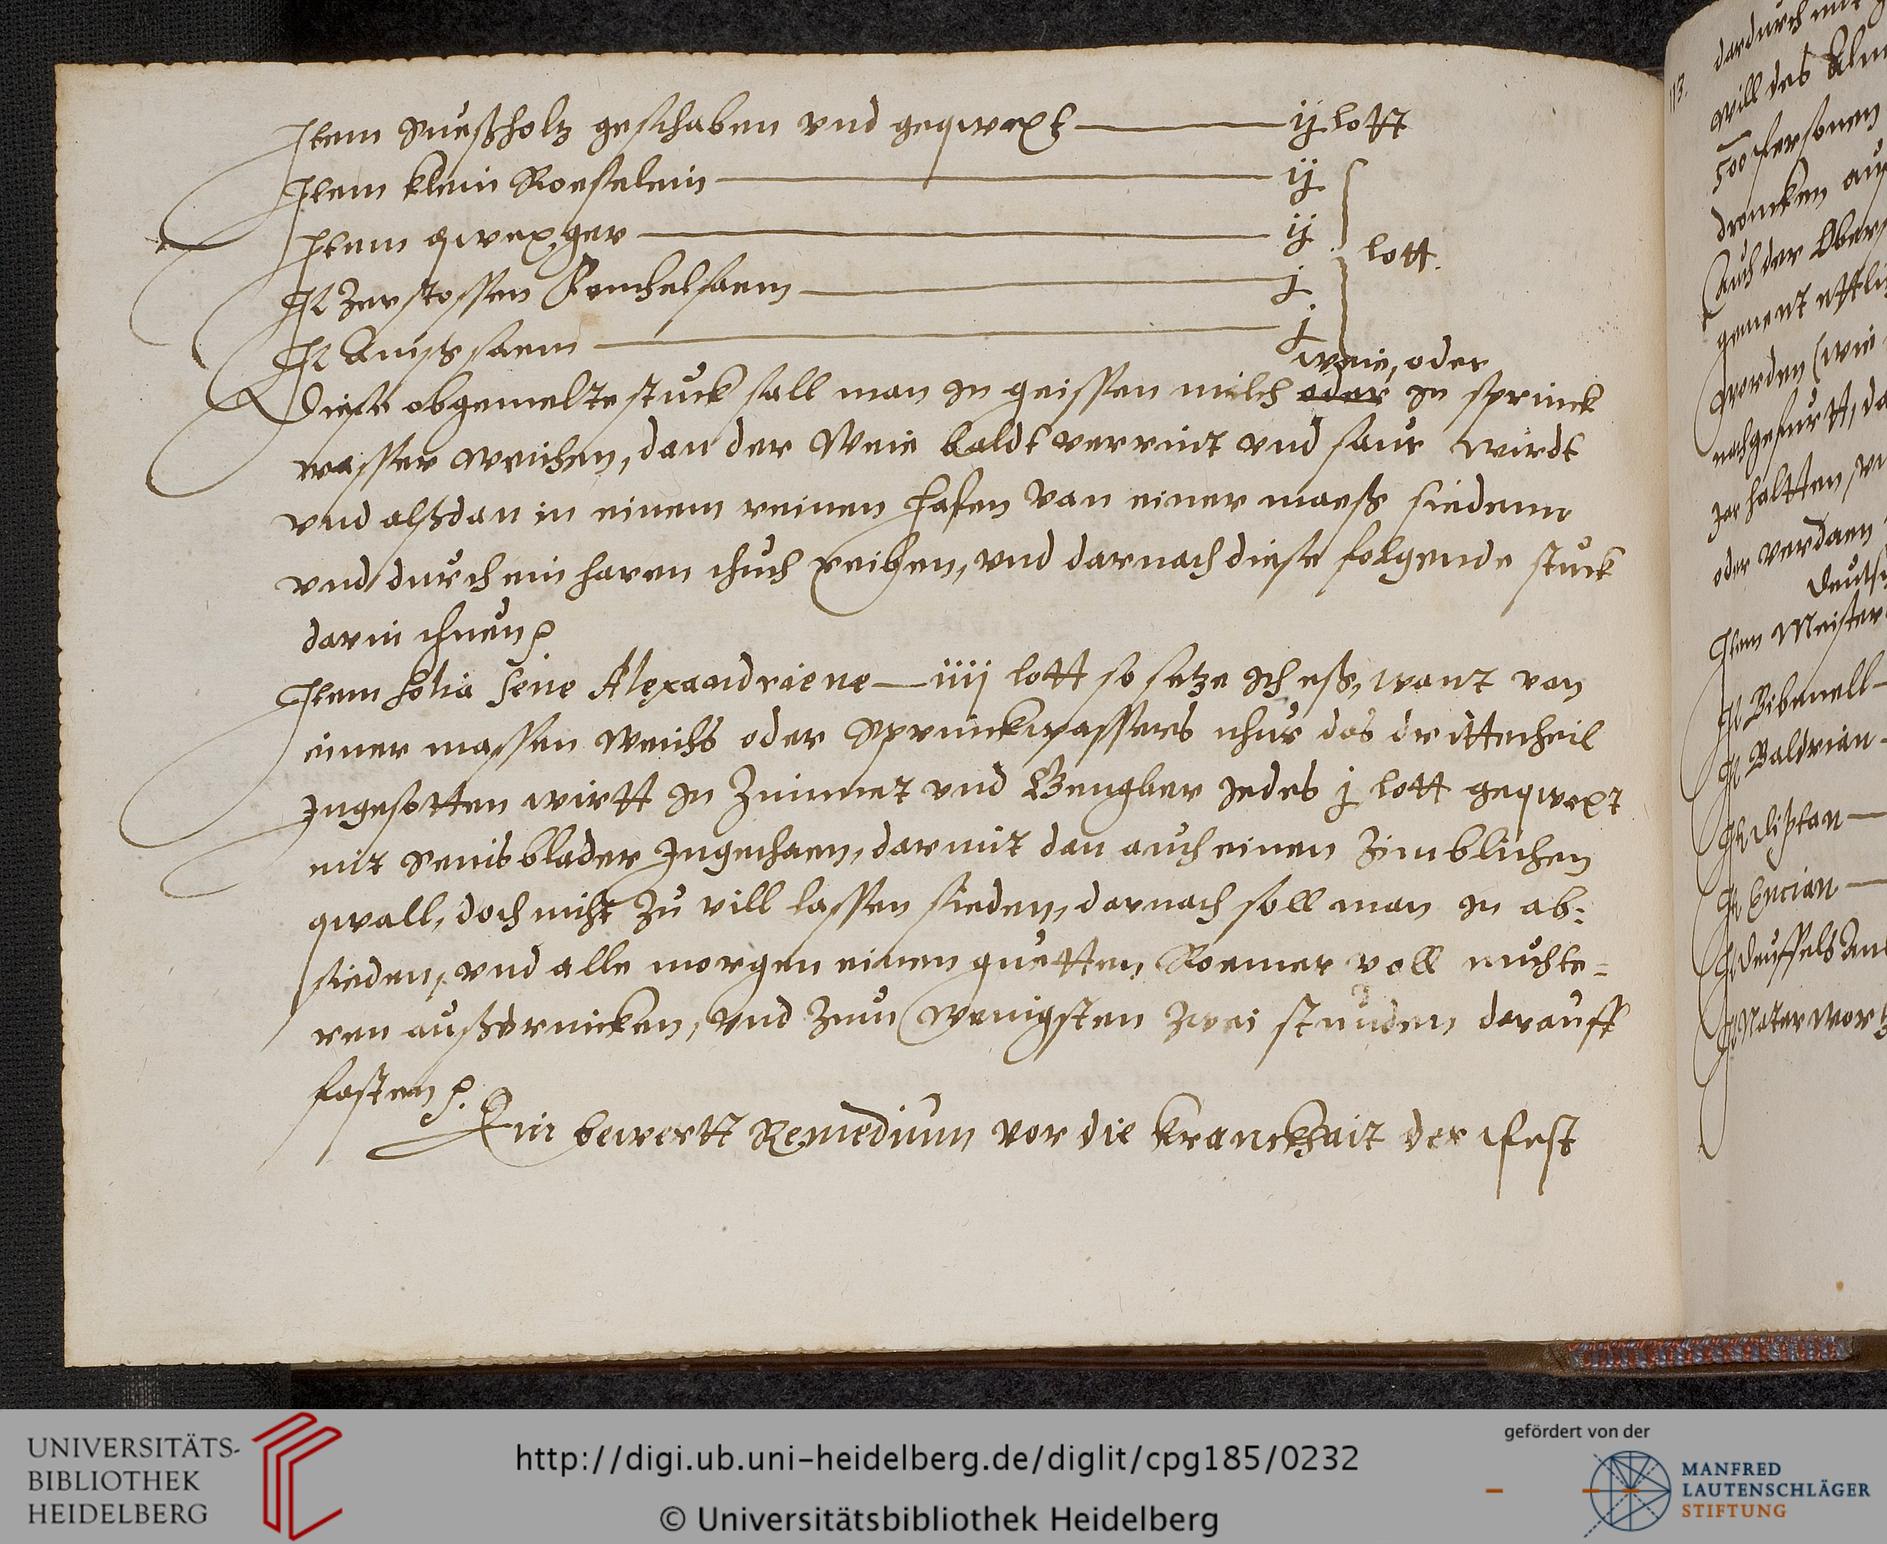 Item Sueßholtz geschaben vnd geqwext — ij lott
Item klein Roeselein — ij
Item qwex,ger — ij
It Zerstossen Fenchelsaem — j lott.
It Anißsaem — j
weie, oder
Diese obgemelte stuck sall man in geissen milch oder in sprinck
wasser weichen, dan der Weie baldt verrint vnd saur wirdt
vnd alßdan in einem reinen hafen van einer maeß siedenn
vnd durch ein haren thuch reiben, vnd darnach diese folgende stuck
darin thuen
Item folia Sene Alexandriene — iiij lott so setze ich eß, want van
einer massen Weichs oder Sprinckwassers nhur das drittetheil
Ingesotten wirtt in Zimmet vnd Gengber Jedes j lott geqwext
mit Senisblader Ingethaen, darmit dan auch einen Zimblichen
qwall, doch nicht zu vill lassen sieden, darnach soll man in ab:
sieden, vnd alle morgen einen guetten Roemer voll nuchte=
ren außdrincken, vnd zum wenigsten zwei stunden darauff
fasten
Ein bewertt Remedium vor die kranckhait der Pest
113.
dardurch mit
will des
500 Personen
droncken auß
Auch der Obers
genent
worden (wie
nachgefurtt, da
Zer haltten
oder verdaen
Deutsch
Item Meister
It Bibenell
It Baldrian
It Diptan
It Encian
It Deuffels
It Naterwortz
UNIVERSITÄTS-
BIBLIOTHEK
HEIDELBERG
http://digi.ub.uni-heidelberg.de/diglit/cpg185/0232
© Universitätsbibliothek Heidelberg
gefördert von der
MANFRED
LAUTENSCHLÄGER
STIFTUNG